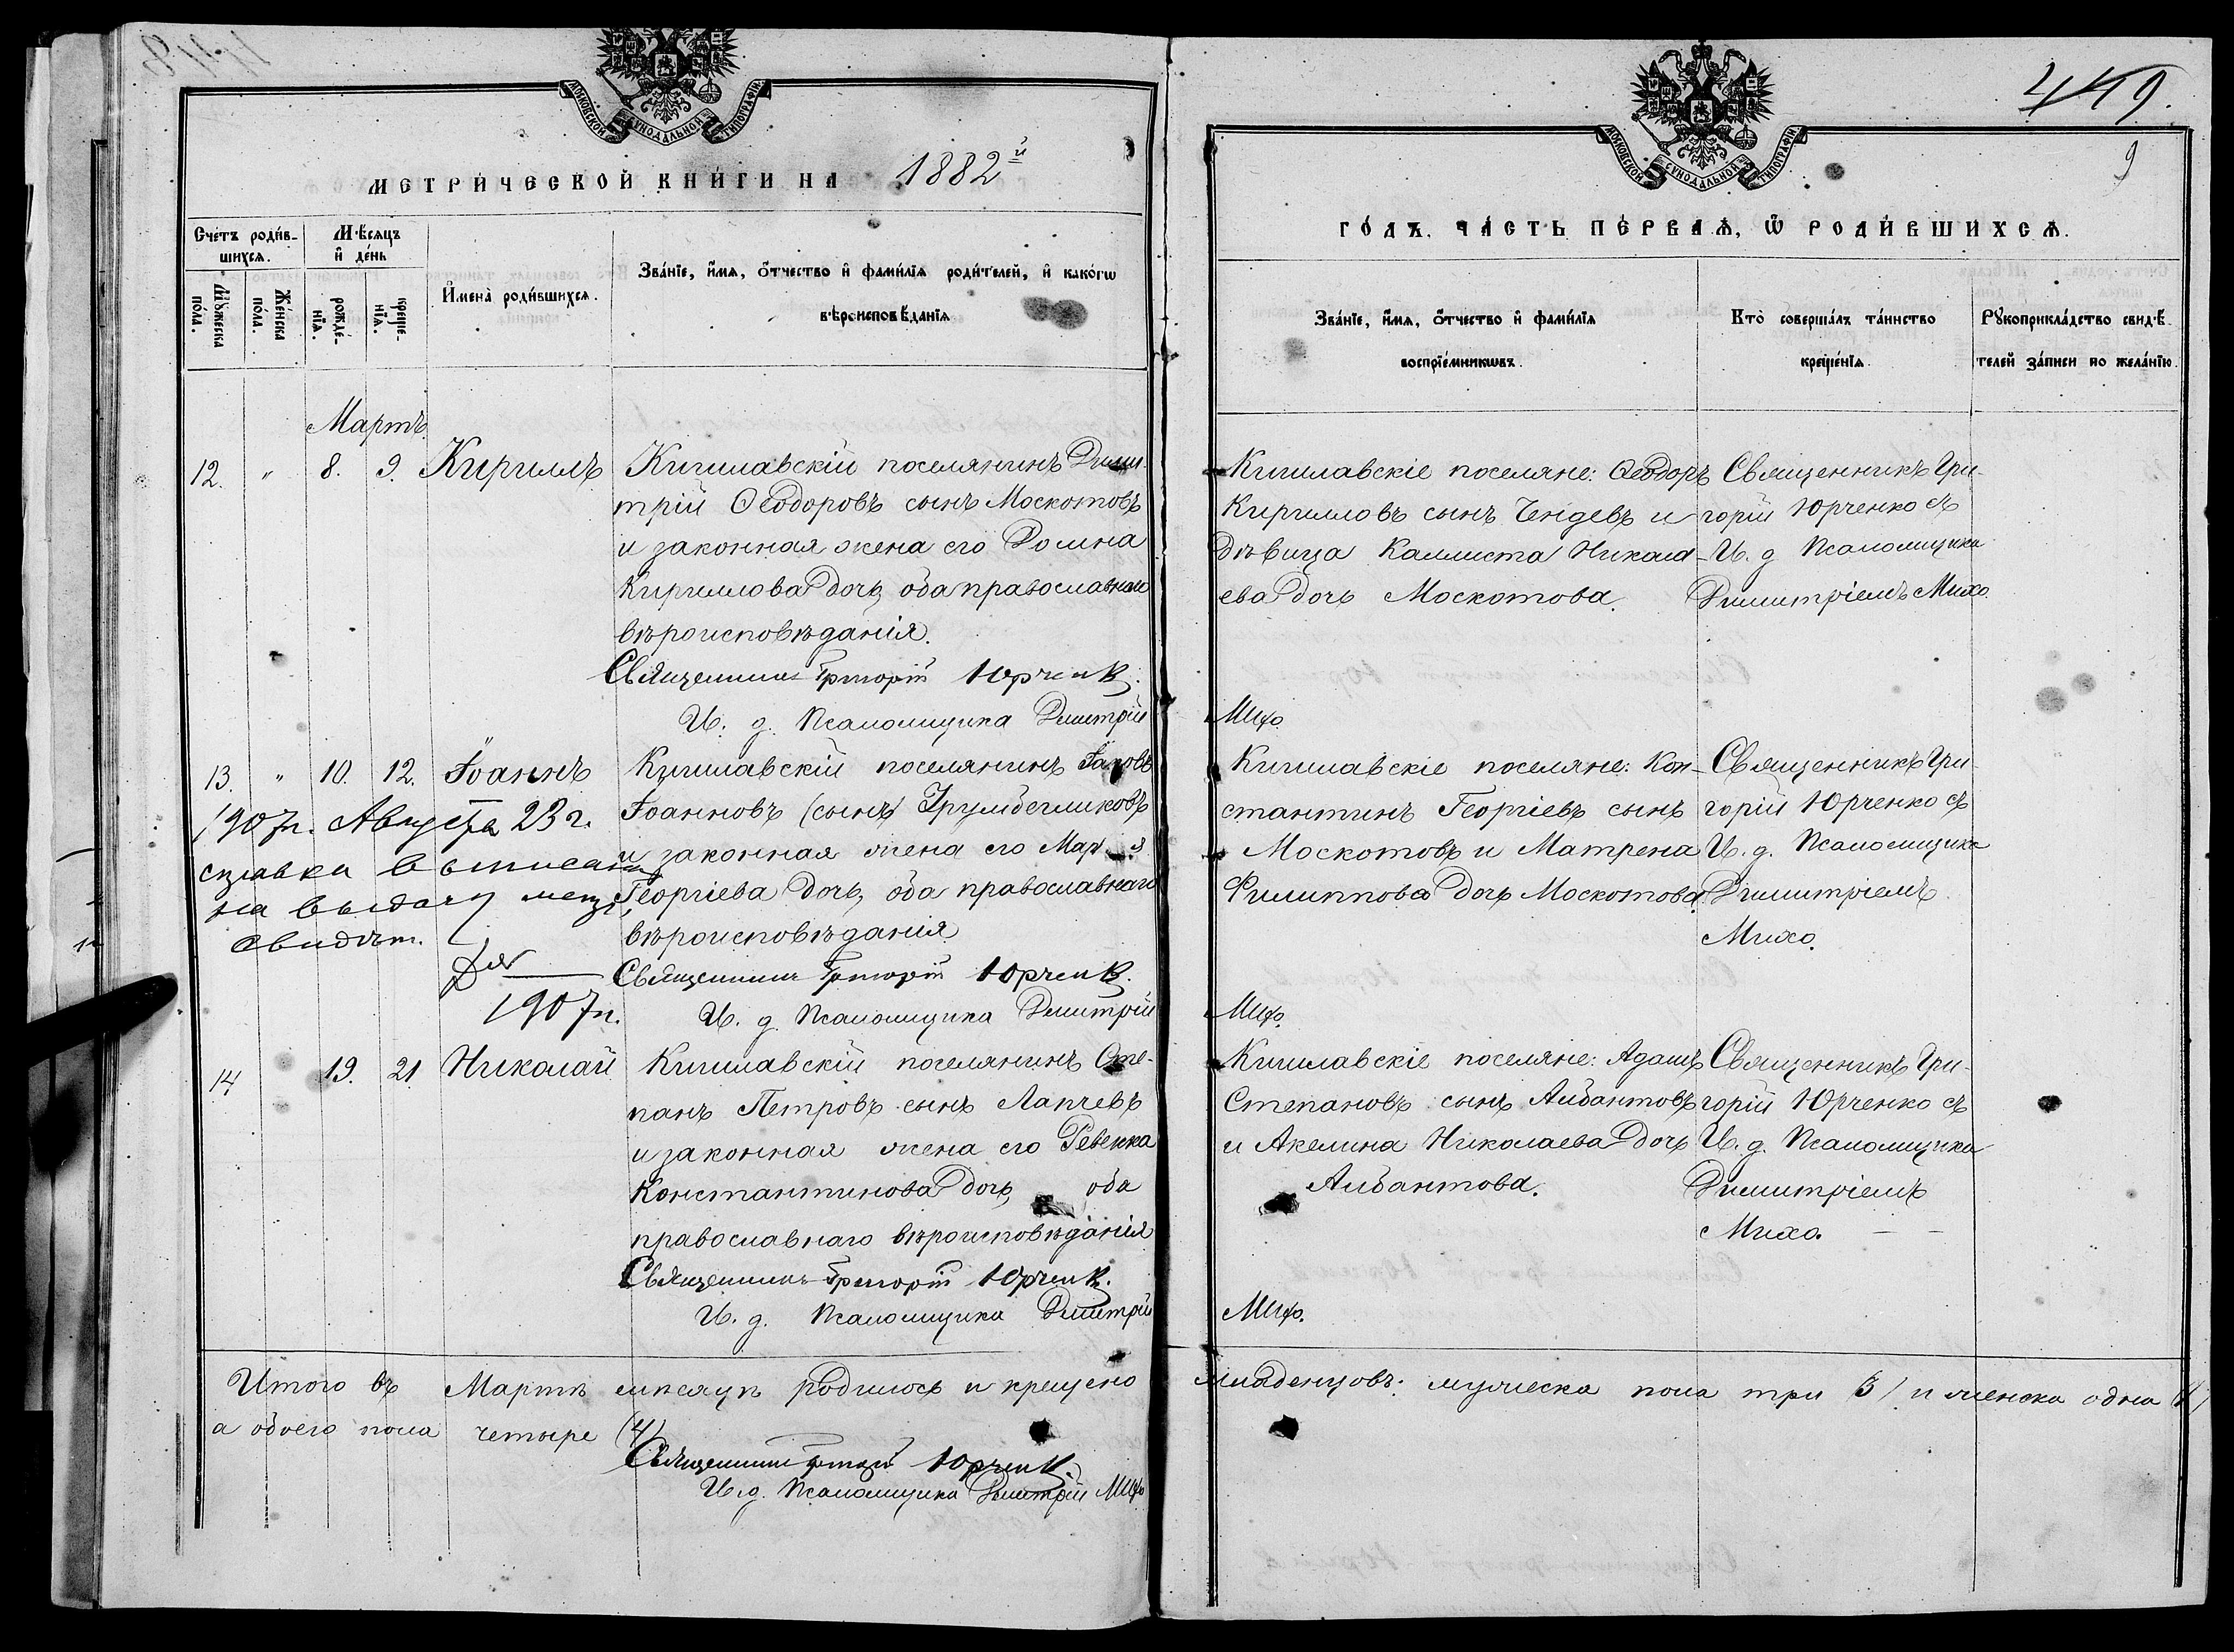 МОСКОВСКОЙ СУНОДАЛЬНОЙ ТИПОГРАФІИ
МЕТРИ́ЧЕСКОЙ КНИ́ГИ НА 1882й
Сче́тъ роди́в-
шихся.
Мѣсяцъ
и҆ де́нь
Мꙋ́жеска по́ла.
Же́нска по́ла.
рожде́-
нїѧ.
креще́-
нїѧ.
И҆мена̀ роди́вшихся.
Зва́нїе, и҆́мѧ, ѻ҆́тчество и҆ фами́лїѧ роди́телей, и҆ како́гѡ
вѣроисповѣ́данїѧ
Мартъ.
12. " 8. 9. Кириллъ
Кишлавскій поселянинъ Дими-
трій Ѳеодоровъ сынъ Москотовъ
и законная жена его Домна
Кириллова дочь, оба православнаго
вѣроисповѣданія.
Священникъ Григорій Юрченко.
И. д. Псаломщика Димитрій
13. " 10. 12. Іоаннъ
Кишлавскій поселянинъ Іаковъ
Іоанновъ (сынъ)
и законная жена его
Георгіева дочь, оба православнаго
вѣроисповѣданія
Священникъ Григорій Юрченко.
И. д. Псаломщика Димитрій
1907г. Августа 23 г.
справка выписана
на выдачу метр.
свидѣт.
1907г.
14 19. 21 Николай
Кишлавскій поселянинъ Сте-
панъ Петровъ сынъ Лапчевъ
и законная жена его Ревекка
Константинова дочь, оба
православнаго вѣроисповѣданія
Священникъ Григорій Юрченко.
И. д. Псаломщика Димитрій
Итого въ Мартѣ мѣсяцѣ родилось и крещено
а обоего пола четыре (4)
Священникъ Григорій Юрченко.
И. д. Псаломщика Димитрій Михо
449.
9
МОСКОВСКОЙ СУНОДАЛЬНОЙ ТИПОГРАФІИ
ГО́ДЪ. ЧА́СТЬ ПЕ́РВАѦ, Ѿ РОДИ́ВШИХСѦ.
Зва́нїе, и҆́мѧ, ѻ҆́тчество и҆ фами́лїѧ
воспрїе́мникѡвъ.
Кто̀ соверша́лъ та́инство
креще́нїѧ.
Рꙋкоприкла́дство свидѣ́-
телей за́писи по жела́нїю.
Кишлавскіе поселяне: Ѳеодоръ
Кирилловъ сынъ Чендевъ и
дѣвица Каллиста Никола-
ева дочь Москотова.
Священникъ Гри-
горій Юрченко съ
И. д Псаломщика
Димитріемъ Михо.
Михо.
Кишлавскіе поселяне: Кон-
стантинъ Георгіевъ сынъ
Москотовъ и Матрена
Филиппова дочь Москотова.
Священникъ Гри-
горій Юрченко съ
И. д. Псаломщика
Димитріемъ
Михо.
Михо.
Кишлавскіе поселяне: Адамъ
Степановъ сынъ Айбантовъ
и Акелина Николаева дочь
Айбантова.
Священникъ Гри-
горій Юрченко съ
И. д. Псаломщика
Димитріемъ
Михо.
Михо.
младенцовъ: мужеска пола три 3/ и женска одна (1)